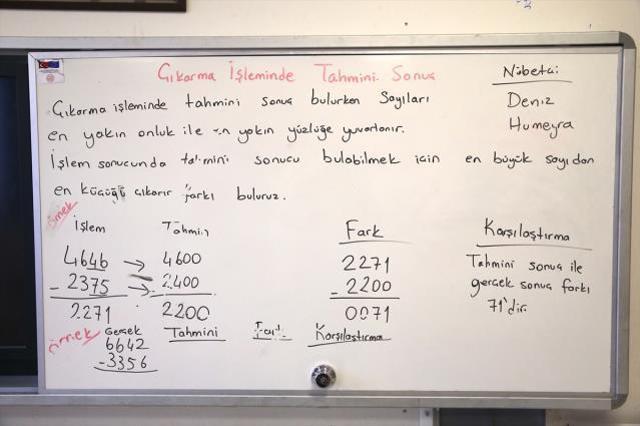 Çıkarma İşleminde Tahmini Sonuç
Nöbetçi
Deniz
Humeyra
Çıkarma işleminde tahmini sonuç bulurken Sayıları
en yakın onluk ile en yakın yüzlüğe yuvarlanır.
İşlem sonucunda tahmini sonucu bulabilmek için en büyük sayıdan
en küçüğü çıkarır farkı buluruz.
örnek
İşlem Tahmin Fark Karşılaştırma
4646 → 4600 2271 Tahmini sonuç ile
- 2375 → - 2400 - 2200 gerçek sonuç farkı
2271 2200 0071 71'dir.
örnek Gerçek Tahmini Fark Karşılaştırma
6642
- 3356